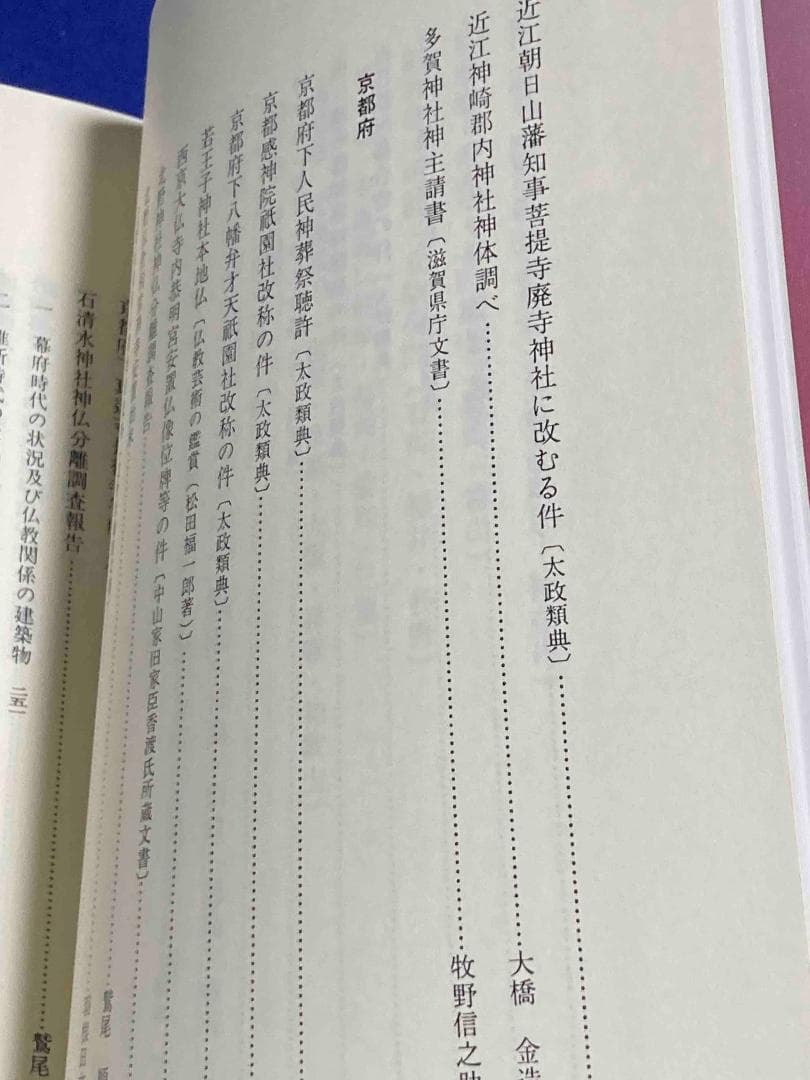 近江朝日山藩知事菩提寺廃寺神社に改むる件〔太政類典〕
近江神崎郡内神社神体調べ 大橋 金造
多賀神社神主請書〔滋賀県庁文書〕 牧野信之助
京都府
京都府下人民神葬祭聴許〔太政類典〕
京都感神院祇園社改称の件〔太政類典〕
京都府下八幡弁才天祇園社改称の件〔太政類典〕
若王子神社本地仏〔仏教芸術の鑑賞（松田福一郎著）〕
西京大仏寺内恭明宮安置仏像位牌等の件〔中山家旧家臣香渡氏所蔵文書〕
北野神社神仏分離調査報告 鷲尾
石清水神社神仏分離調査報告 鷲尾
一 幕府時代の状況及び仏教関係の建築物 二五一
二 維新時代の